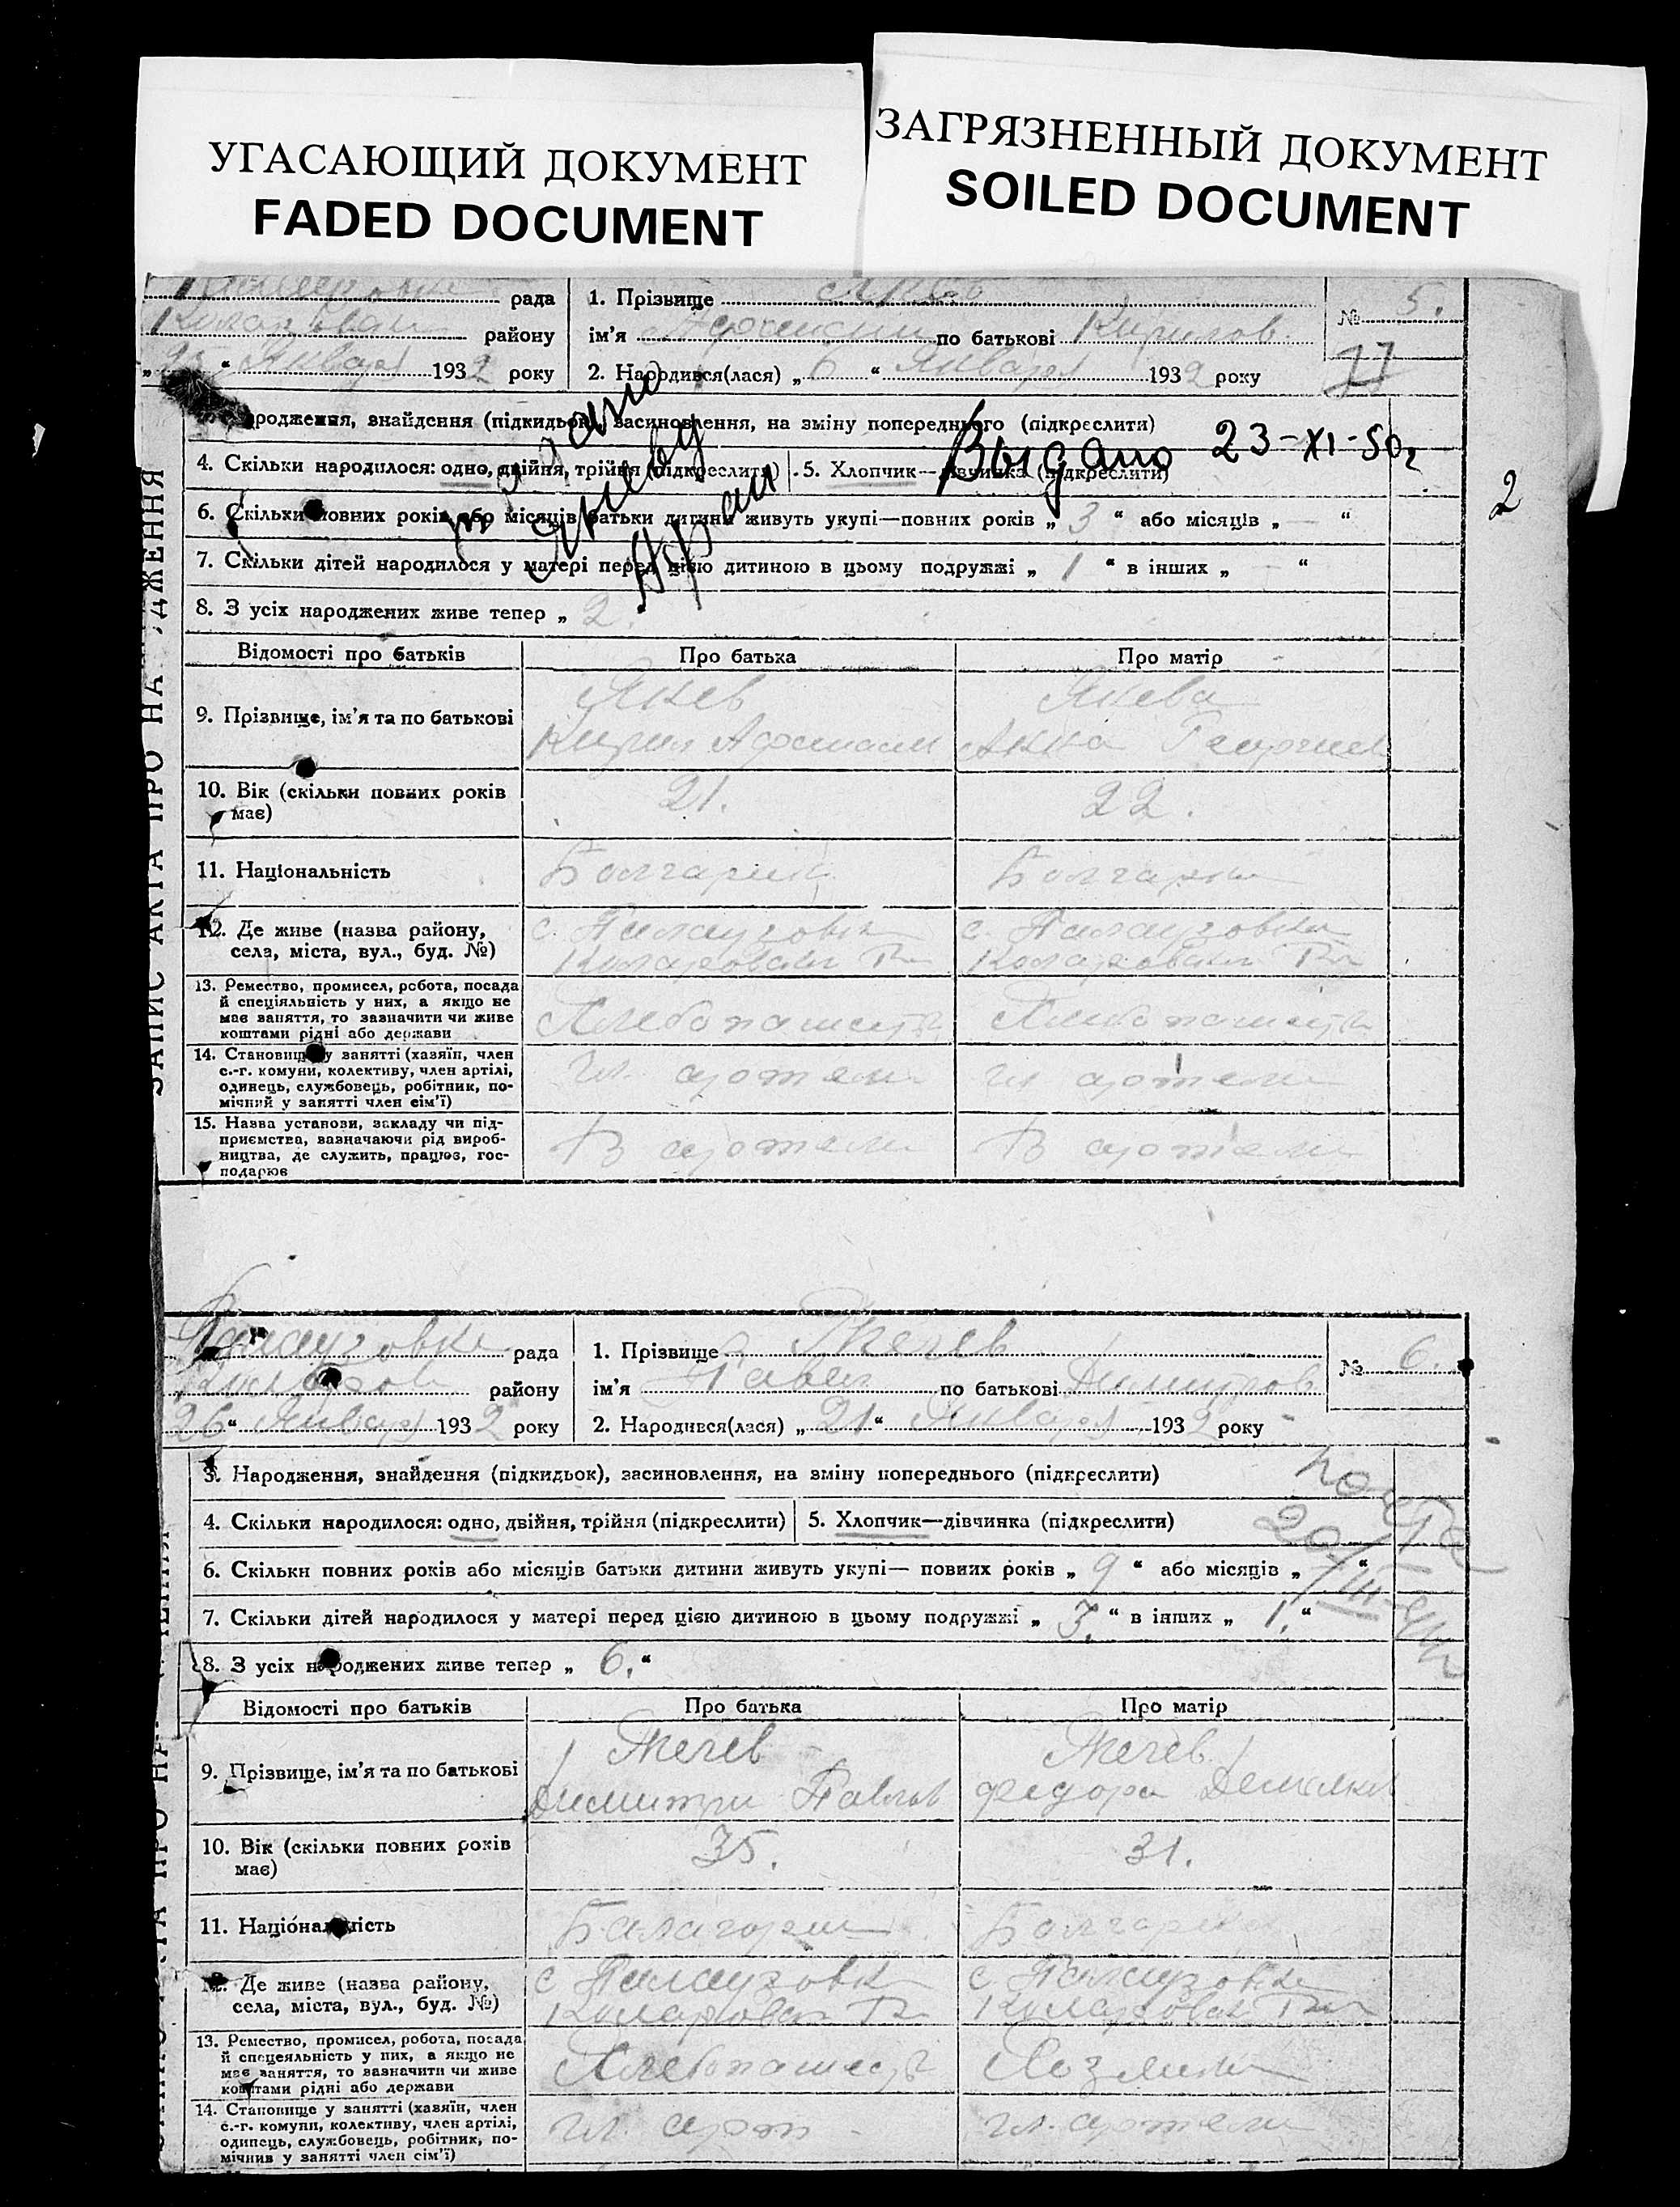 УГАСАЮЩИЙ ДОКУМЕНТ
FADED DOCUMENT
ЗАГРЯЗНЕННЫЙ ДОКУМЕНТ
SOILED DOCUMENT
рада
1. Прізвище
№ 5.
району
ім'я по батькові Кирилов
77
Января 1932 року
2. Народився(лася) „ 6 “ Января 1932 року
народження, знайдення (підкидьок), засиновлення, на зміну попереднього (підкреслити)
Выдано 23-XI-50г
4. Скільки народилося: одно, двійня, трійня (підкреслити)
5. Хлопчик—дівчинка (підкреслити)
2
6. Скільки повних років або місяців батьки дитини живуть укупі—повних років „ 3 “ або місяців „ — “
7. Скільки дітей народилося у матері перед цією дитиною в цьому подружжі „ 1 “ в інших „ — “
8. З усіх народжених живе тепер „ 2.
Відомості про батьків
Про батька
Про матір
9. Прізвище, ім'я та по батькові
Якев
Кирил Афанаси
Якева
Анна Георгиев
10. Вік (скільки повних років має)
21.
22.
11. Національність
Болгарин
Болгарка
12. Де живе (назва району, села, міста, вул., буд. №)
с. Палаузовка
Коларовски Рн
с. Палаузовка
Коларовски Рн
13. Ремество, промисел, робота, посада й спеціяльність у них, а якщо не має заняття, то зазначити чи живе коштами рідні або держави
Хлебопашество
Хлебопашество
14. Становище у занятті (хазяїн, член с.-г. комуни, колективу, член артілі, одинець, службовець, робітник, помічний у занятті член сім'ї)
чл. артели
чл артели
15. Назва установи, закладу чи підприємства, зазначаючи рід виробництва, де служить, працює, господарює
В артели
В артели
ЗАПИС АКТА ПРО НА ДЖЕННЯ
Палаузовка рада
1. Прізвище
№ 6.
району
ім'я Павел по батькові Димитров
26 “ Января 1932 року
2. Народився(лася) „ 21 “ Января 1932 року
3. Народження, знайдення (підкидьок), засиновлення, на зміну попереднього (підкреслити)
4. Скільки народилося: одно, двійня, трійня (підкреслити)
5. Хлопчик—дівчинка (підкреслити)
6. Скільки повних років або місяців батьки дитини живуть укупі— повних років „ 9 “ або місяців „ “
7. Скільки дітей народилося у матері перед цією дитиною в цьому подружжі „ 3. “ в інших „ 1. “
8. З усіх народжених живе тепер „ 6. “
Відомості про батьків
Про батька
Про матір
9. Прізвище, ім'я та по батькові
Димитри Павлов
Федора
10. Вік (скільки повних років має)
35.
31.
11. Національність
Болгарка
12. Де живе (назва району, села, міста, вул., буд. №)
с Палаузовк
Коларовски Рн
с Палаузовка
Коларовски Рн
13. Ремество, промисел, робота, посада й спецеяльність у них, а якщо не має заняття, то зазначити чи живе коштами рідні або держави
Хлебопашеств
14. Становище у занятті (хазяїн, член с.-г. комуни, колективу, член артілі, одинець, службовець, робітник, помічнив у занятті член сім'ї)
чл. арт
чл. артели